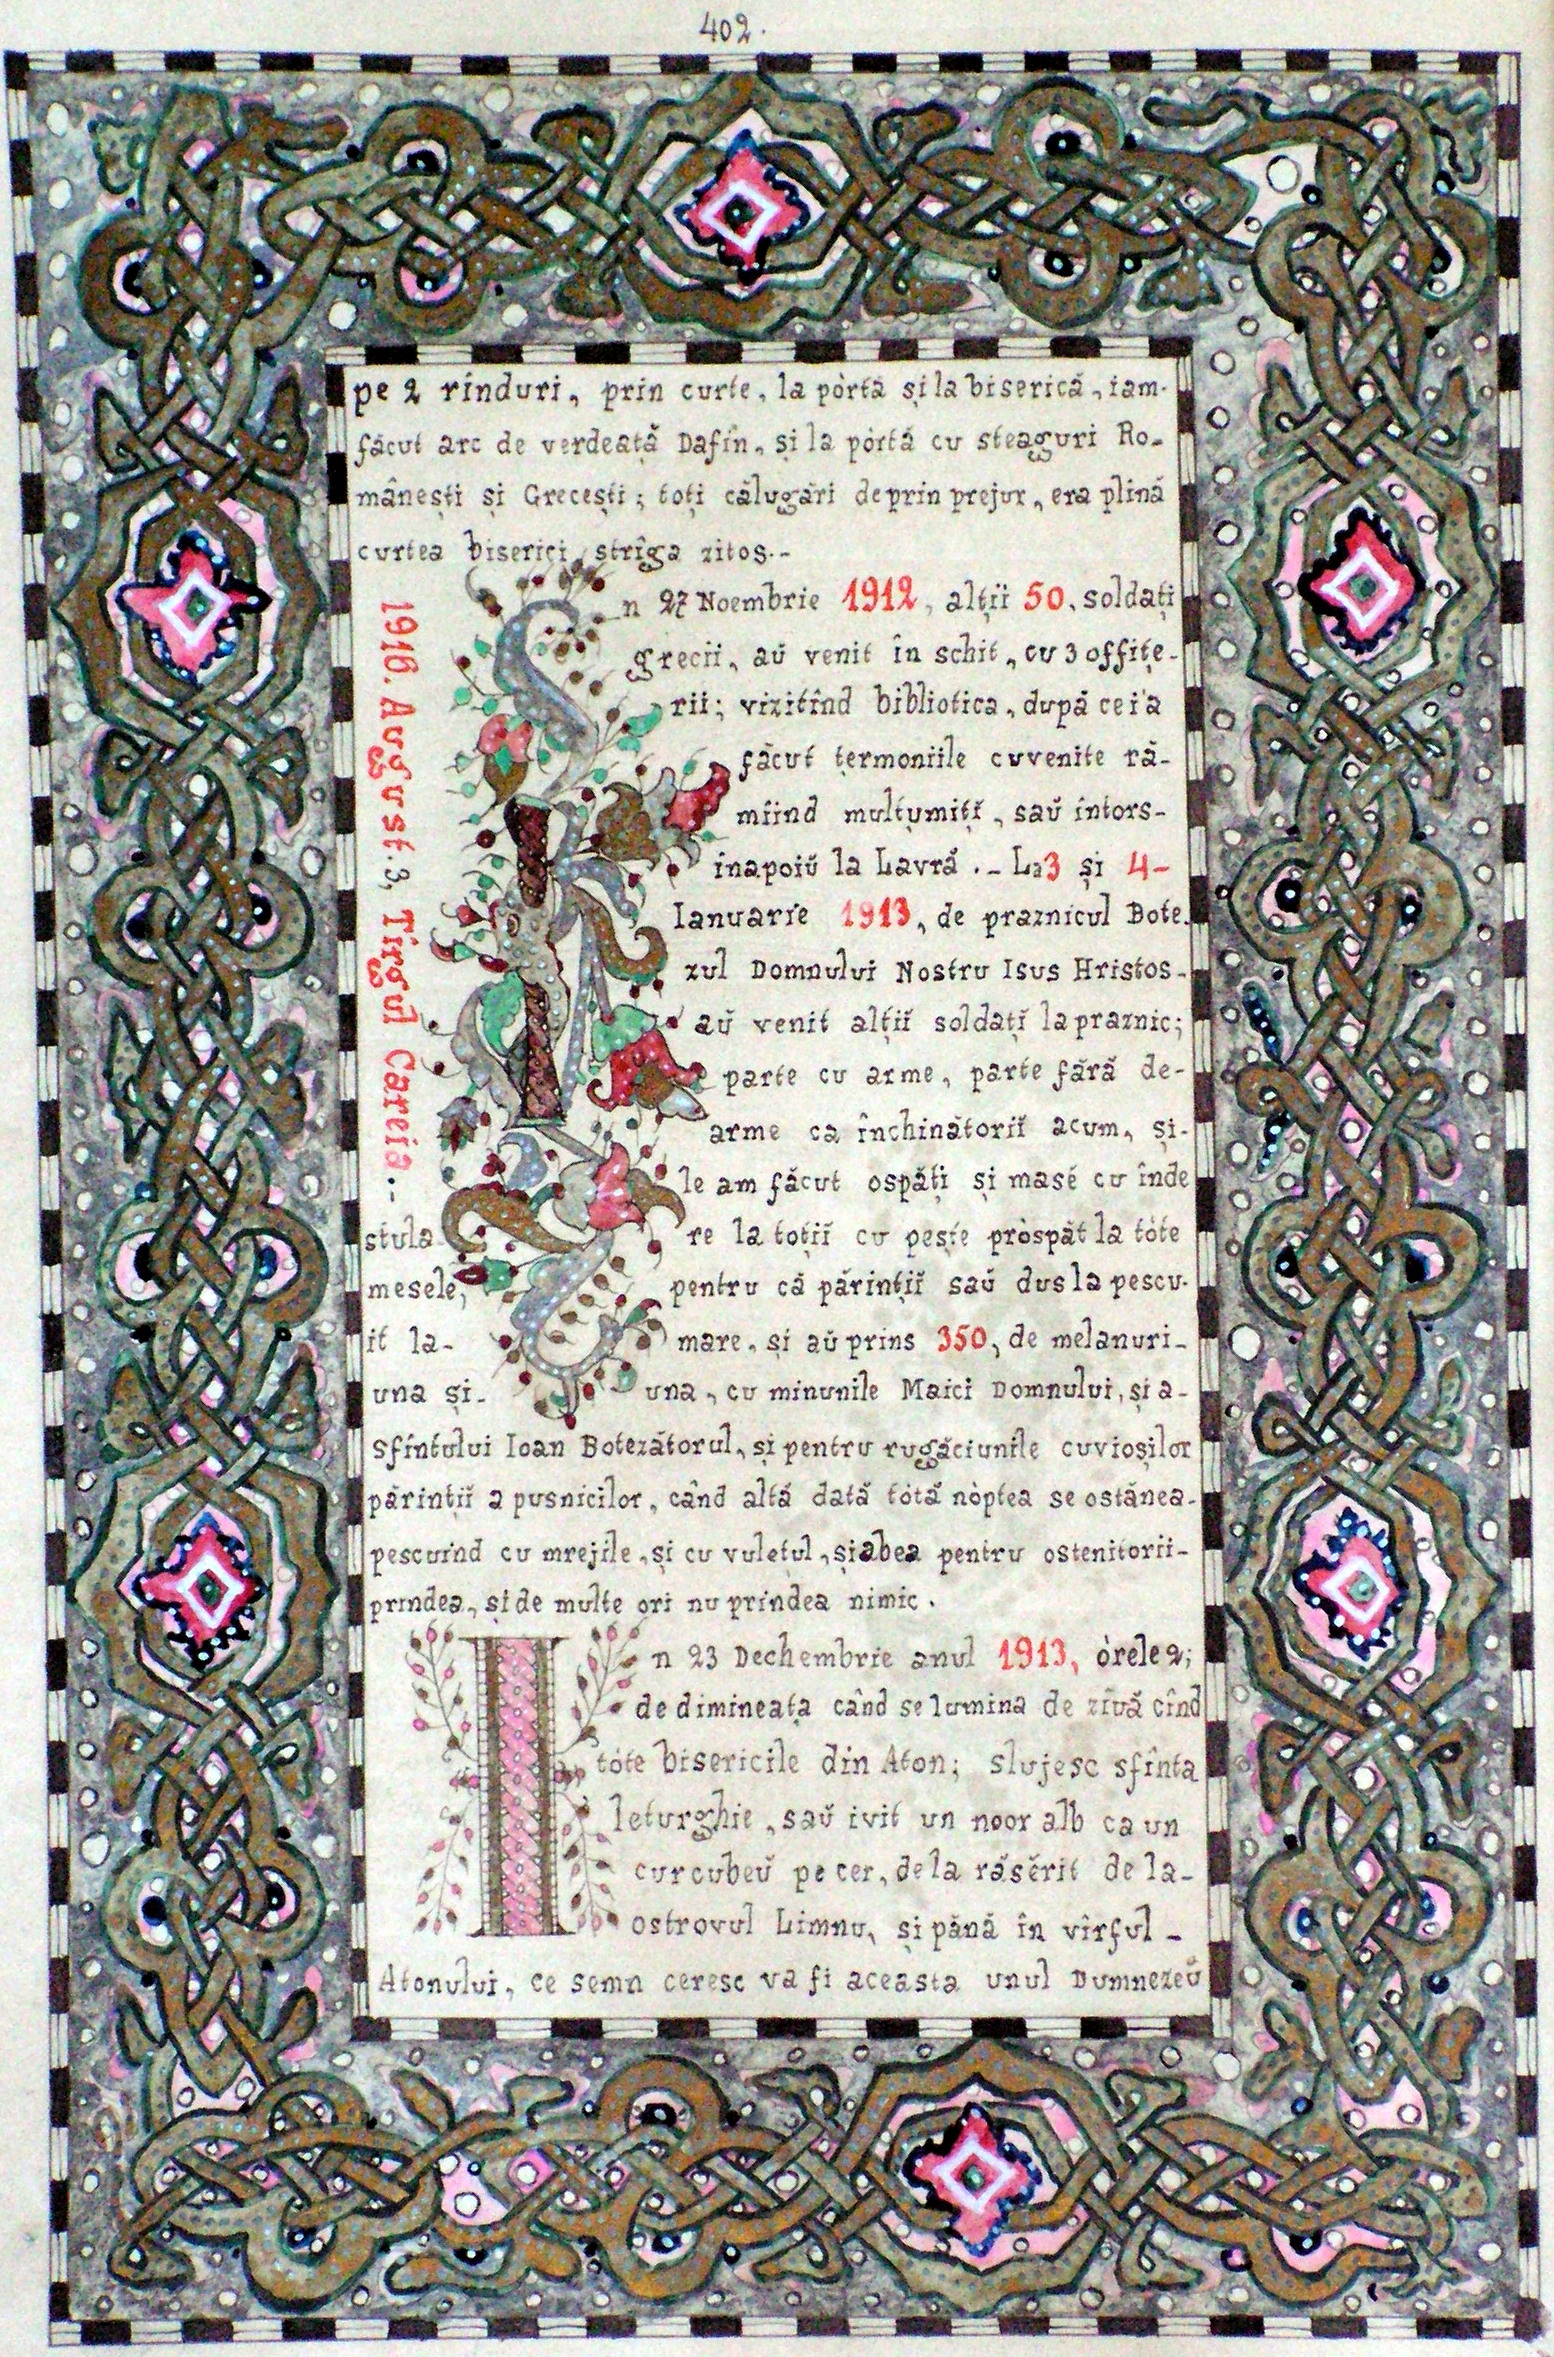 402.
pe 2 rînduri, prin curte, la pòrtă și la biserică, iam-
făcut arc de verdeață Dafin, și la pòrtă cu steaguri Ro-
mânești și Grecești; toți călugări deprin prejur, era plină
curtea biserici, strîga zitos.-
n 27 Noembrie 1912, alții 50, soldați
grecii, aŭ venit în schit, cu 3 offițe-
rii; vizitînd bibliotica, după ce i'a
făcut țermoniile cuvenite ră-
mîind mulțumiți, saŭ întors-
înapoiŭ la Lavră.- La 3 și 4-
Ianuarie 1913, de praznicul Bote-
zul Domnului Nostru Isus Hristos-
aŭ venit alțiĭ soldațĭ la praznic;
parte cu arme, parte fără de-
arme ca închinătoriĭ acum, și-
le am făcut ospăți și masé cu înde
stula re la toțiĭ cu pește pròspăt la tòte
mesele, pentru că părințiĭ saŭ dus la pescu-
it la- mare, și aŭ prins 350, de melanuri-
una și- una, cu minunile Maici Domnului, și a-
sfîntului Ioan Botezătorul, și pentru rugăciunile cuvioșilor
părințiĭ a pusnicilor, când altă dată tòtă nòptea se ostănea-
pescuind cu mrejile, și cu vuletul, și abea pentru ostenitorii-
prindea, și de multe ori nu prindea nimic.
În 23 Dechembrie anul 1913, òrele 2;
de dimineața când se lumina de zîuă cînd
tòte bisericile din Aton; slujesc sfînta
leturghie, saŭ ivit un noor alb ca un
curcubeŭ pe cer, de la răsĕrit de la-
ostrovul Limnu, și până în vîrful-
Atonului, ce semn ceresc va fi aceasta unul Dumnezeŭ
1916. August. 3, Tirgul Careia.-